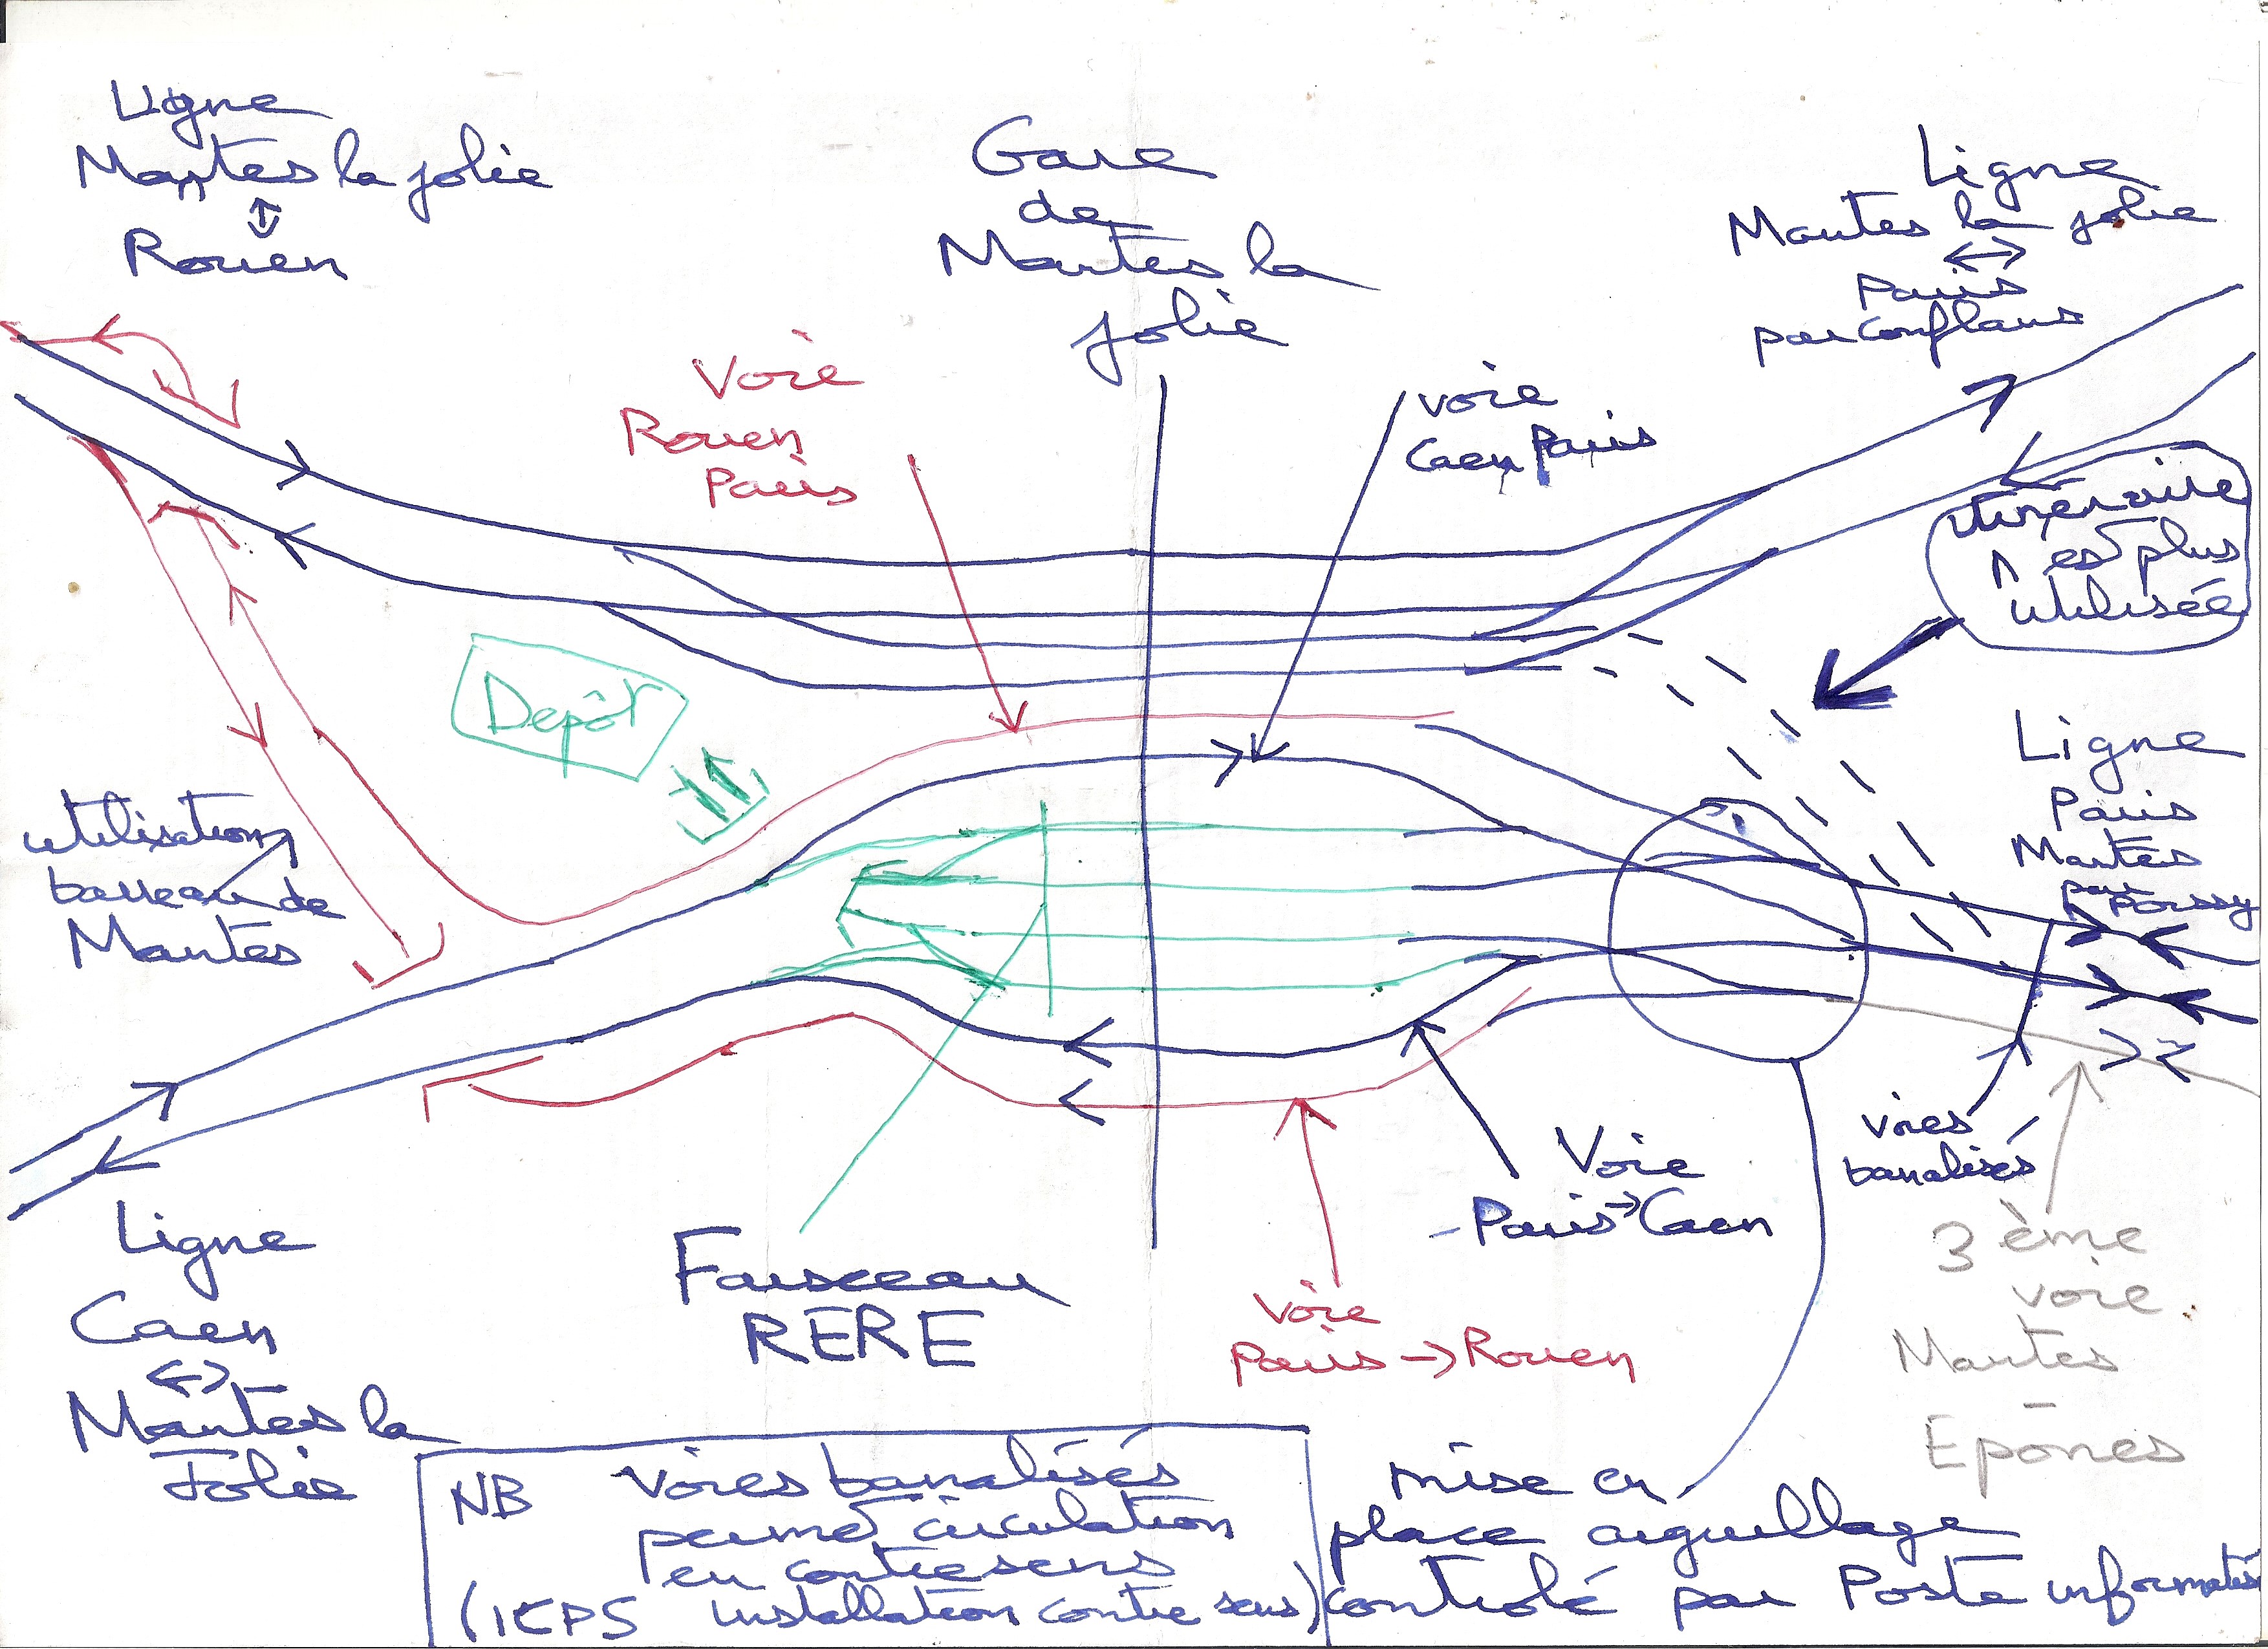 Ligne
Mantes la jolie
↕
Rouen
Gare
de
Mantes la
jolie
Ligne
Mantes la jolie
↔
Paris
par Conflans
Voie
Rouen
Paris
voie
Caen Paris
itinéraire
n'est plus
utilisée
Depôt
Ligne
Paris
Mantes
par
Poissy
utilisation
barreau de
Mantes
voies
banalisés
Voie
Paris → Caen
3ème
voie
Mantes
-
Epônes
Faisceau
RERE
voie
Paris → Rouen
Ligne
Caen
↔
Mantes la
Jolie
NB voies banalisés
permet circulation
en contresens
(ICPS installation contre sens)
mise en
place aiguillage
controlé par Poste informatisé